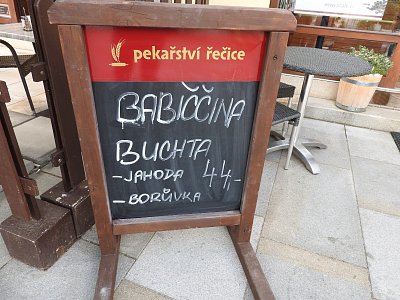 pekařství řečice
BABIČČINA
BUCHTA
-JAHODA 44,-
-BORŮVKA